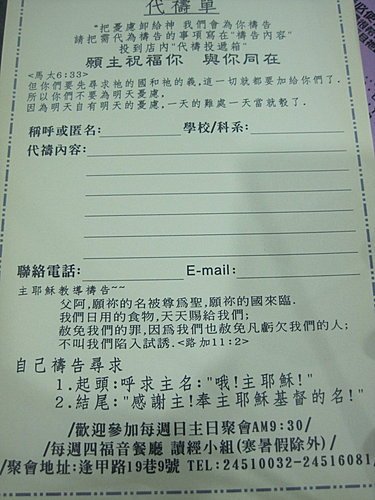 代禱單
"把憂慮卸給神 我們會為你禱告
請把需代為禱告的事項寫在"禱告內容"
投到店內"代禱投遞箱"
願主祝福你 與你同在
<馬太6:33>
但你們要先尋求祂的國和祂的義,這一切就都要加給你們了.
所以你們不要為明天憂慮,
因為明天自有明天的憂慮,一天的難處一天當就彀了.
稱呼或匿名: 學校/科系:
代禱內容:
聯絡電話: E-mail:
主耶穌教導禱告~~
父阿,願祢的名被尊為聖,願祢的國來臨.
我們日用的食物,天天賜給我們;
赦免我們的罪,因為我們也赦免凡虧欠我們的人;
不叫我們陷入試誘.<路加11:2>
自己禱告尋求
1.起頭:呼求主名:"哦!主耶穌!"
2.結尾:"感謝主!奉主耶穌基督的名!"
/歡迎參加每週日主日聚會AM9:30/
/每週四福音餐廳 讀經小組(寒暑假除外)/
/聚會地址:逢甲路19巷9號 TEL:24510032-24516081/